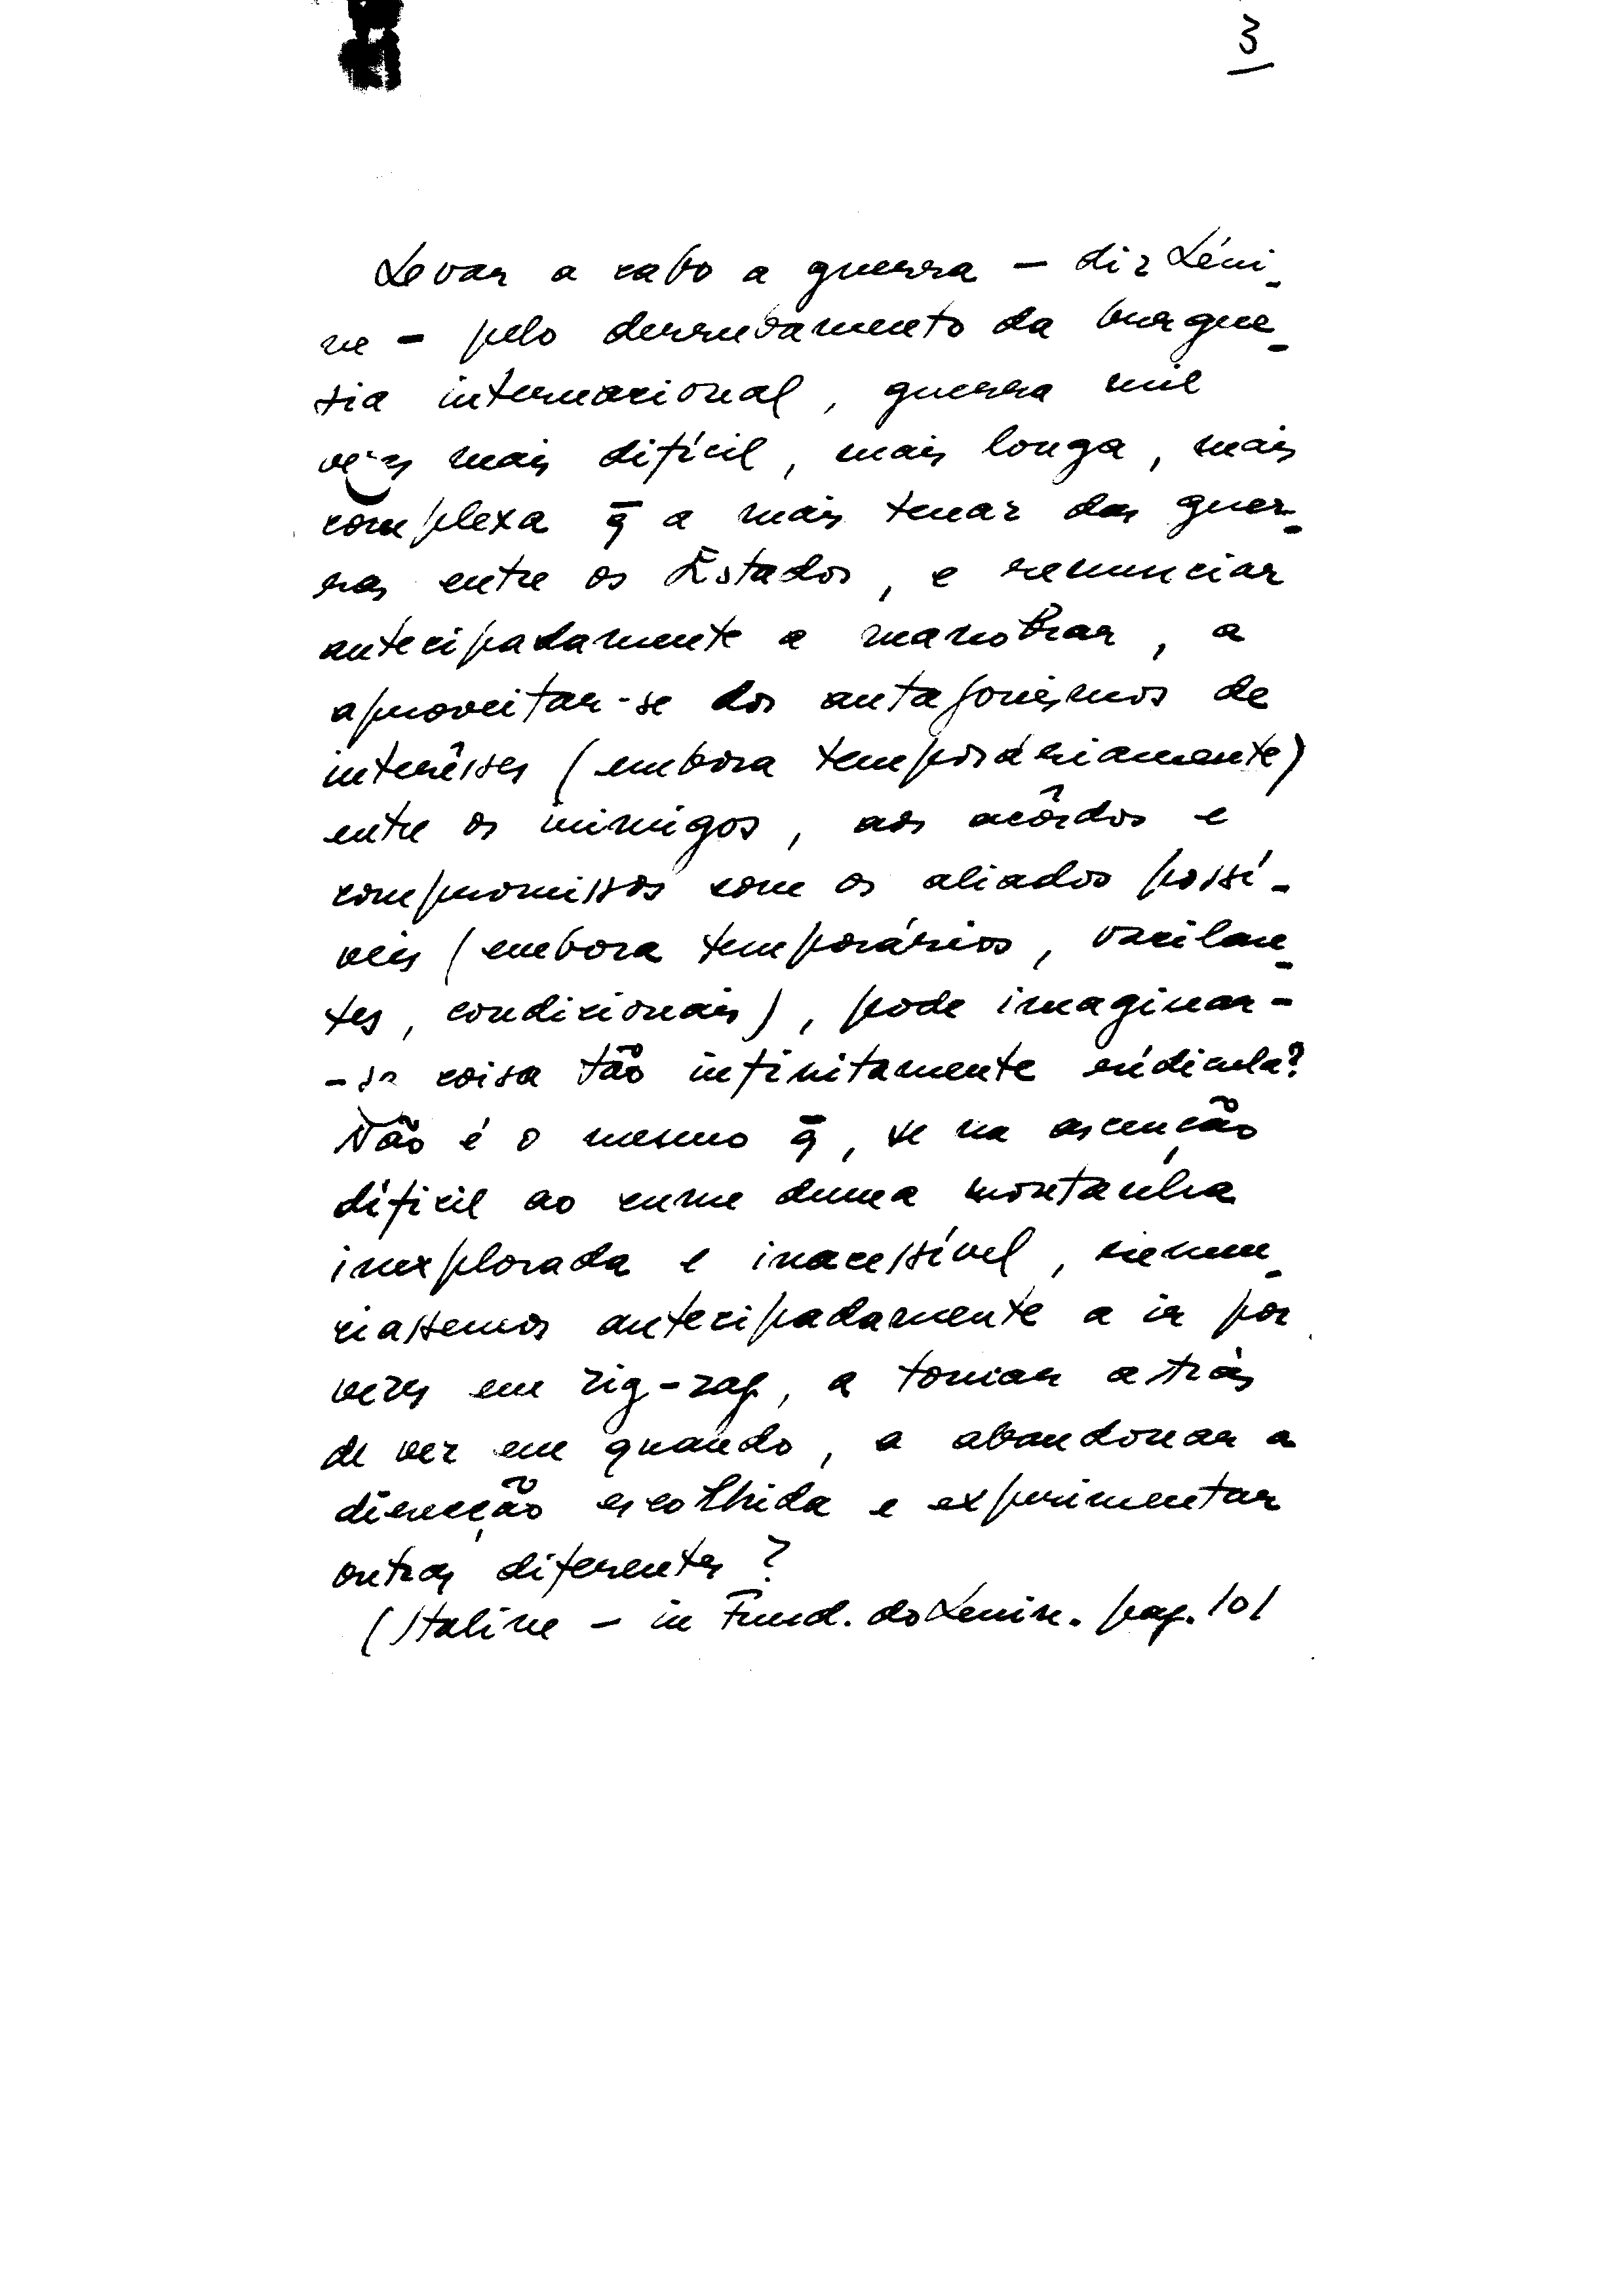 3
Levar a cabo a guerra — diz Léni-
ne — pelo derrubamento da burgue-
sia internacional, guerra mil
vezes mais difícil, mais longa, mais
complexa q̄ a mais tenaz das guer-
ras entre os Estados, e renunciar
antecipadamente a manobrar, a
aproveitar-se dos antagonismos de
interêsses (embora temporáriamente)
entre os inimigos, aos acôrdos e
compromissos com os aliados possí-
veis (embora temporários, vacilan-
tes, condicionais), pode imaginar-
-se coisa tão infinitamente ridícula?
Não é o mesmo q̄, se na ascenção
difícil ao cume duma montanha
inexplorada e inacessível, renun-
ciassemos antecipadamente a ir por
vezes em zig-zag, a tornar atrás
de vez em quando, a abandonar a
direcção escolhida e experimentar
outras diferentes?
(Staline — in Fund. do Lenin. pag. 101